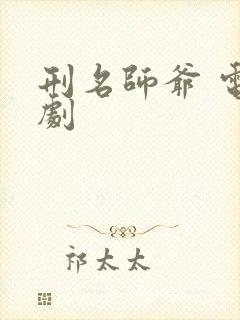 刑名師爺 電
劇
祁太太